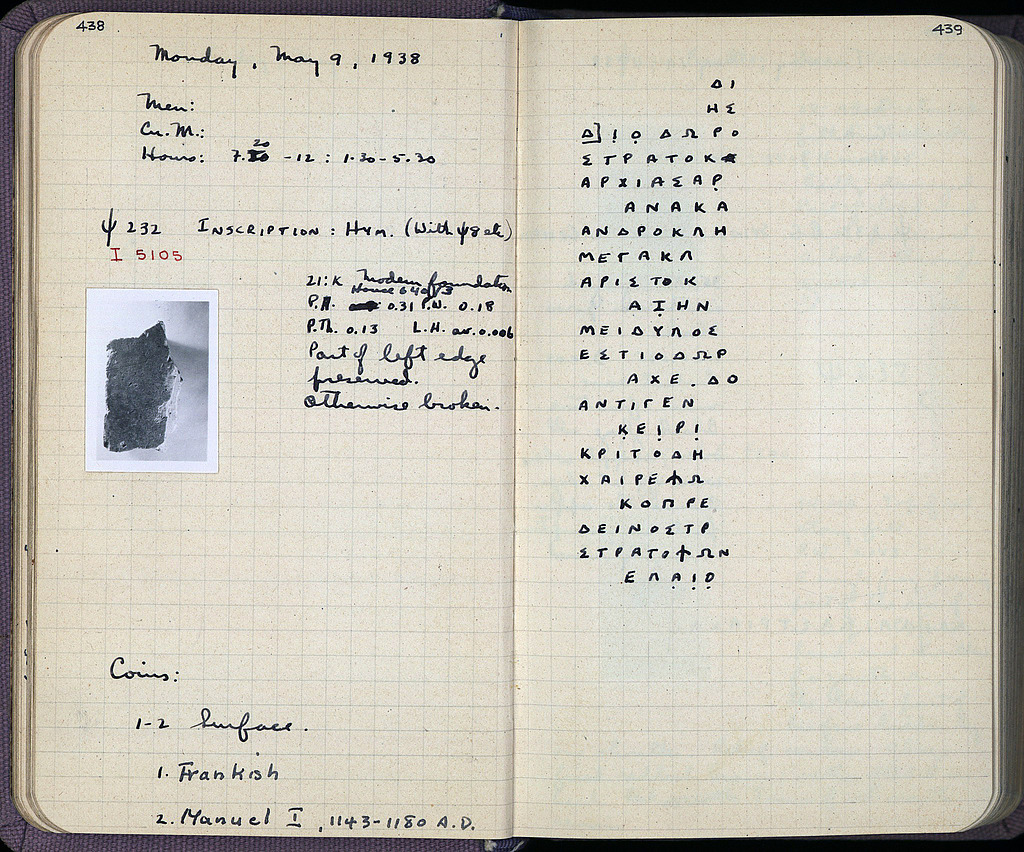 438
Monday, May 9, 1938
Men:
Cu. M.:
Hours: 7.20 - 12 : 1.30 - 5.30
ψ 232 INSCRIPTION : HYM. (With ψ8 etc)
I 5105
21: K Modern foundation
House 640/3
P.H. 0.31 P.W. 0.18
P.Th. 0.13 L.H. av. 0.006
Part of left edge
preserved.
Otherwise broken.
Coins:
1-2 Surface.
1. Frankish
2. Manuel I, 1143-1180 A.D.
439
Δ Ι
Η Σ
Δ] Ι̣ Ο̣ Δ Ω Ρ Ο
Σ Τ Ρ Α Τ Ο Κ
Α Ρ Χ Ι Α Σ Α Ρ̣
Α Ν Α Κ Α
Α Ν Δ Ρ Ο Κ Λ Η
Μ Ε Γ Α Κ Λ
Α Ρ Ι Σ Τ Ο Κ
Α Ι̣ Η Ν
Μ Ε Ι Δ Υ Λ Ο Σ
Ε Σ Τ Ι Ο Δ Ω Ρ
Α Χ Ε . Δ Ο
Α Ν Τ Ι Γ Ε Ν
Κ̣ Ε Ι̣ Ρ Ι̣
Κ Ρ Ι Τ Ο Δ Η
Χ Α Ι Ρ Ε Φ Ω
Κ Ο Π Ρ Ε
Δ Ε Ι Ν Ο Σ Τ Ρ
Σ Τ Ρ Α Τ Ο Φ Ω Ν
Ε Λ Α̣ Ι̣ Ο̣